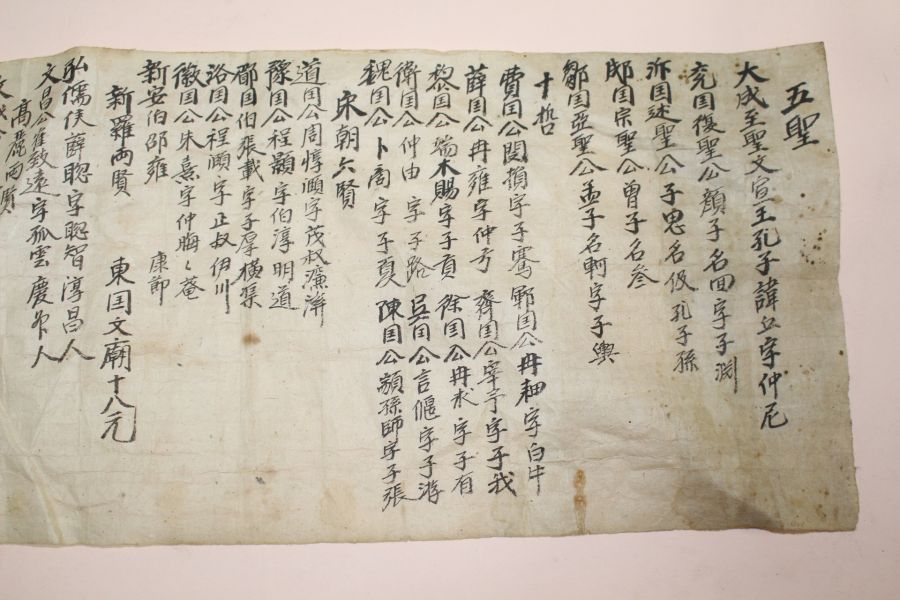 五聖
大成至聖文宣王孔子諱丘字仲尼
兖国復聖公顔子名回字子渊
沂国述聖公子思名伋孔子孫
郕国宗聖公曾子名参
鄒国亞聖公孟子名軻字子輿
十哲
費国公閔損字子騫 鄆国公冉耕字白牛
薛国公冉雍字仲弓 齊国公宰予字子我
黎国公端木賜字子貢 徐国公冉求字子有
衛国公仲由字子路 吳国公言偃字子游
魏国公卜商字子夏 陳国公顓孫師字子張
宋朝六賢
道国公周惇頤字茂叔濂溪
豫国公程顥字伯淳明道
郿国伯張載字子厚橫渠
洛国公程頤字正叔伊川
徽国公朱熹字仲晦〻菴
新安伯邵雍 康節
新羅両賢 東国文廟十八元
弘儒侯薛聡字聡智淳昌人
文昌公崔致遠字孤雲慶州人
高麗両賢